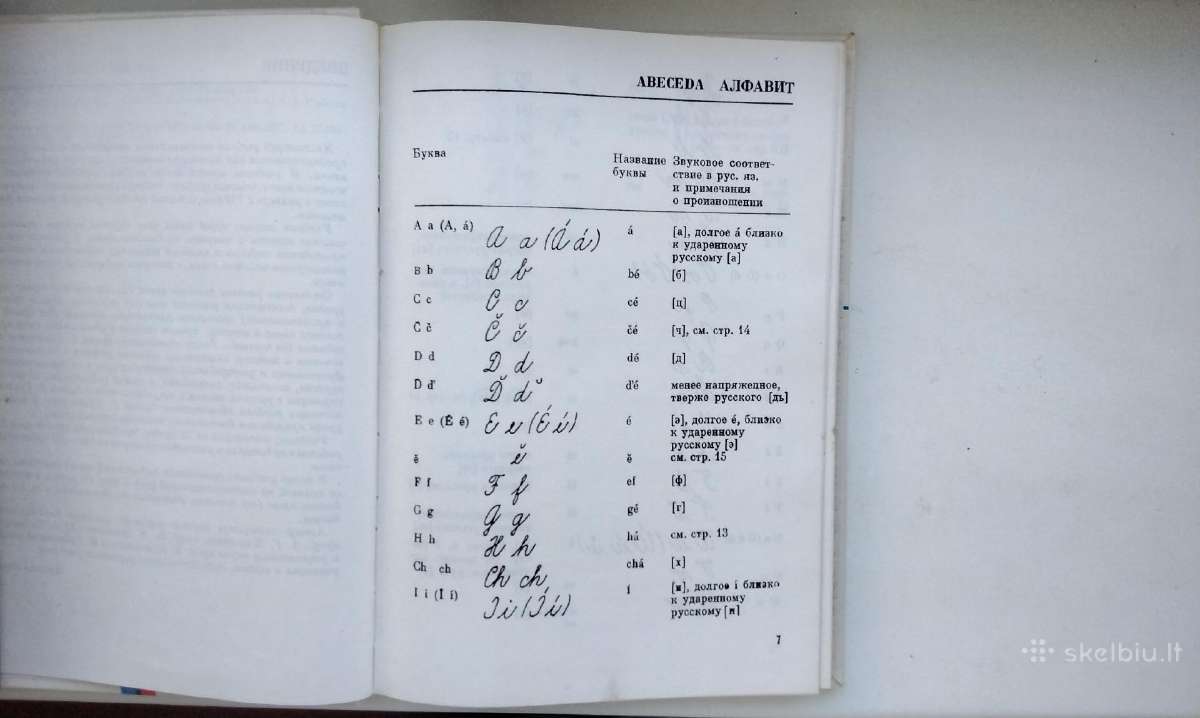 ABECEDA АЛФАВИТ
Буква Название Звуковое соответ-
буквы ствие в рус. яз.
и примечания
о произношении
A a (Á, á) A a (Á á) á [а], долгое á близко
к ударенному
русскому [а]
B b B b bé [б]
C c C c cé [ц]
Č č Č č čé [ч], см. стр. 14
D d D d dé [д]
Ď ď Ď ď ďé менее напряженное,
тверже русского [дь]
E e (É é) E e (É é) é [э], долгое é, близко
к ударенному
русскому [э]
ě ě ě см. стр. 15
F f F f ef [ф]
G g G g gé [г]
H h H h há см. стр. 13
Ch ch Ch ch chá [х]
I i (Í í) I i (Í í) í [и], долгое í близко
к ударенному
русскому [и]
7
skelbiu.lt